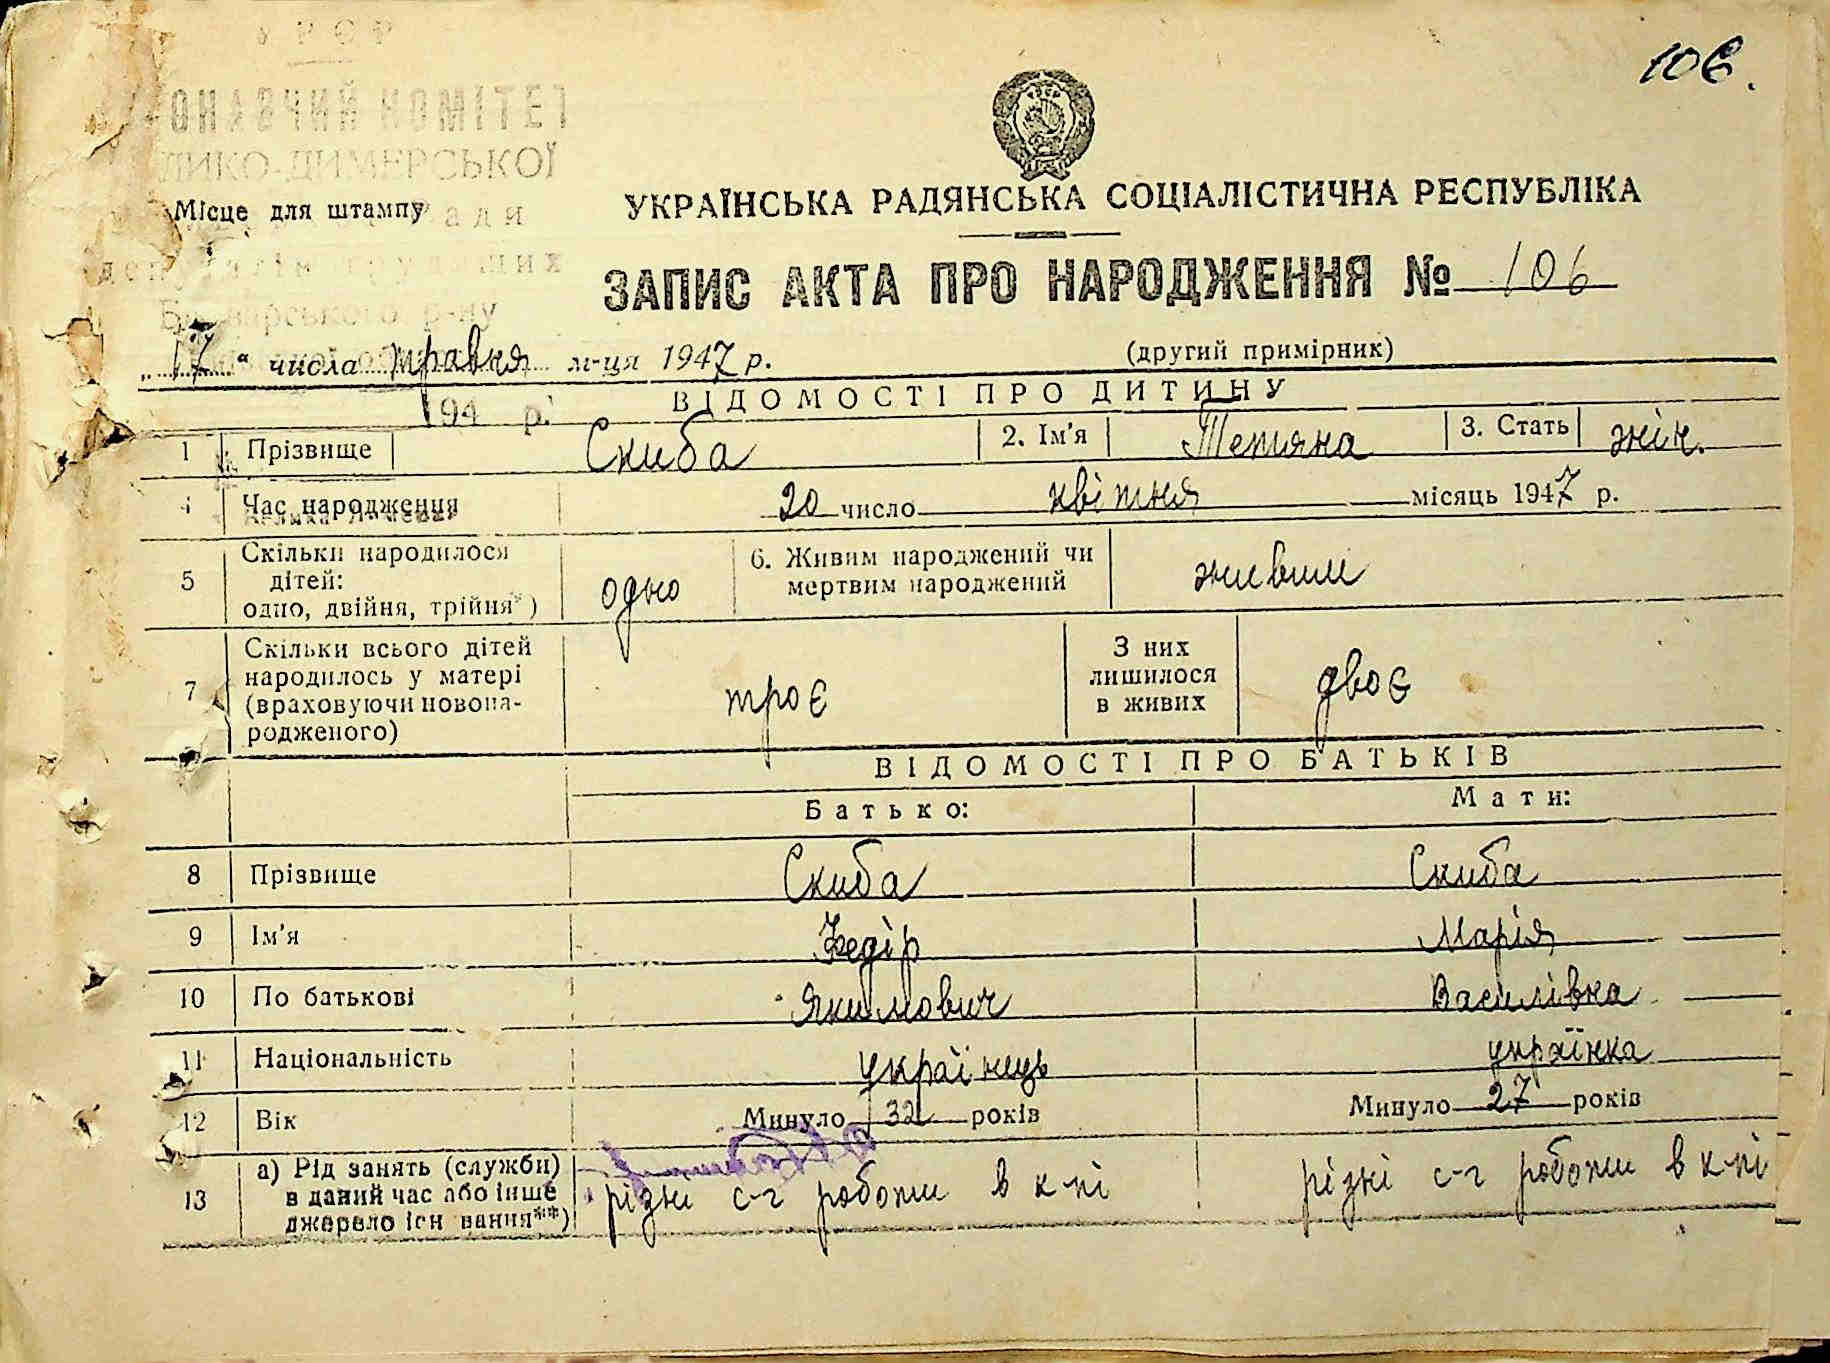 УРСР
106.
ОНАВЧИЙ КОМІТЕТ
ЛИКО-ДИМЕРСЬКОЇ
Місце для штампу
ради
депутатів трудящих
Броварського р-ну
УКРАЇНСЬКА РАДЯНСЬКА СОЦІАЛІСТИЧНА РЕСПУБЛІКА
ЗАПИС АКТА ПРО НАРОДЖЕННЯ № 106
„17" числа травня м-ця 1947 р.
(другий примірник)
194 р.
ВІДОМОСТІ ПРО ДИТИНУ
1 Прізвище Скиба 2. Ім'я Тетяна 3. Стать жін.
4 Час народження 20 число квітня місяць 1947 р.
5 Скільки народилося дітей: одно, двійня, трійня*) одно 6. Живим народжений чи мертвим народжений живим
7 Скільки всього дітей народилось у матері (враховуючи новонародженого) троє З них лишилося в живих двоє
ВІДОМОСТІ ПРО БАТЬКІВ
Батько: Мати:
8 Прізвище Скиба Скиба
9 Ім'я Федір Марія
10 По батькові Якимович Василівна
11 Національність українець українка
12 Вік Минуло 32 років Минуло 27 років
13 а) Рід занять (служби) в даний час або інше джерело існування**) різні с-г роботи в к-пі різні с-г роботи в к-пі